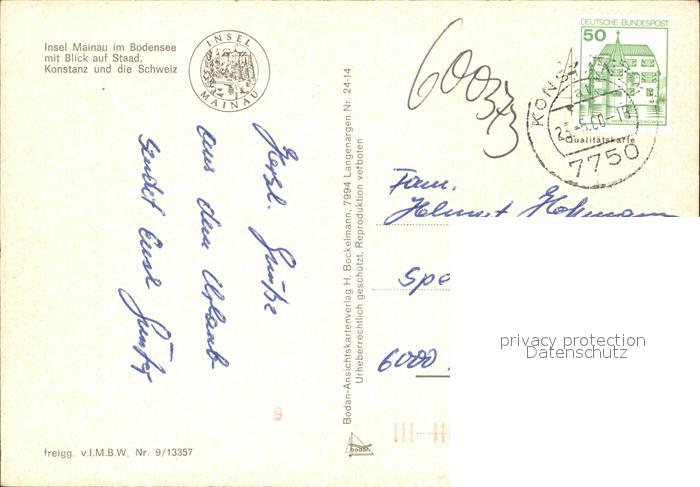 Insel Mainau im Bodensee
mit Blick auf Staad,
Konstanz und die Schweiz
INSEL
MAINAU
Herzl. Grüße
aus dem Urlaub
sendet Euch Günter
freigg. v.I.M.B.W. Nr. 9/13357
9
Bodan-Ansichtskartenverlag H. Bockelmann, 7994 Langenargen Nr. 24-14
Urheberrechtlich geschützt, Reproduktion verboten
bodan
600373
DEUTSCHE BUNDESPOST
50
7750
Qualitätskarte
Fam.
Helmut
6000
privacy protection
Datenschutz